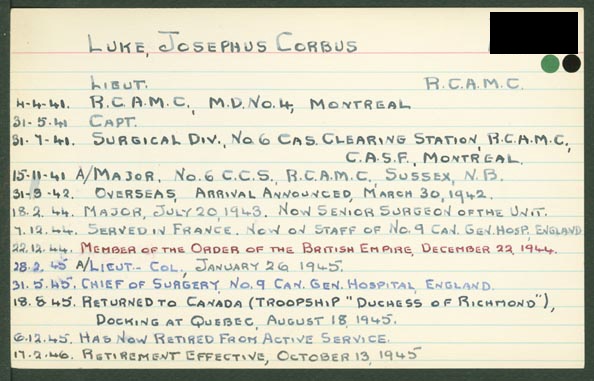 LUKE, JOSEPHUS CORBUS
LIEUT. R.C.A.M.C.
4-4-41. R.C.A.M.C., M.D. NO. 4, MONTREAL
31-5-41 CAPT.
31-7-41. SURGICAL DIV., NO 6 CAS. CLEARING STATION, R.C.A.M.C.,
C.A.S.F., MONTREAL.
15-11-41 A/MAJOR, NO. 6 C.C.S., R.C.A.M.C., SUSSEX, N.B.
31-3-42. OVERSEAS, ARRIVAL ANNOUNCED, MARCH 30, 1942.
18.2.44. MAJOR, JULY 20, 1943. NOW SENIOR SURGEON OF THE UNIT.
7.12.44. SERVED IN FRANCE. NOW ON STAFF OF NO. 9 CAN. GEN. HOSP. ENGLAND
22.12.44. MEMBER OF THE ORDER OF THE BRITISH EMPIRE, DECEMBER 22, 1944.
28.2.45 A/LIEUT.-COL., JANUARY 26 1945.
31.5.45. CHIEF OF SURGERY, NO. 9 CAN. GEN. HOSPITAL, ENGLAND.
18.8.45. RETURNED TO CANADA (TROOPSHIP "DUCHESS OF RICHMOND"),
DOCKING AT QUEBEC, AUGUST 18, 1945.
6.12.45. HAS NOW RETIRED FROM ACTIVE SERVICE.
17.2.46. RETIREMENT EFFECTIVE, OCTOBER 13, 1945